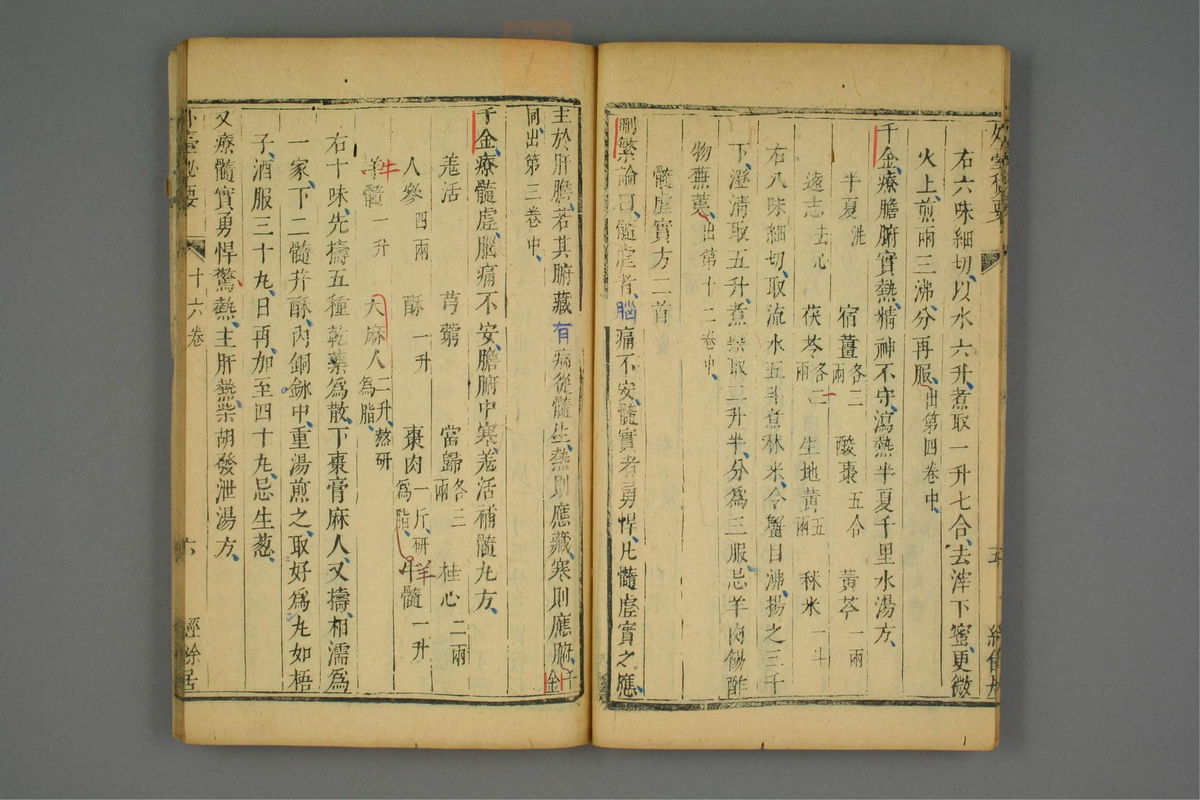 右六味細切以水六升煮取一升七合去滓下蜜更微
火上煎兩三沸分再服出第四卷中
千金療膽腑實熱精神不守瀉熱半夏千里水湯方
半夏洗 宿薑各三兩 酸棗五合 黃芩一兩
遠志去心 茯苓各二兩 生地黃五兩 秫米一斗
右八味細切取流水五斗煮秫米令蟹目沸揚之三千
下澄清取五升煮藥取二升半分爲三服忌羊肉餳酢
物蕪荑出第十二卷中
髓虛實方二首
刪繁論曰髓虛者腦痛不安髓實者勇悍凡髓虛實之應
主於肝膽若其腑藏有病從髓生熱則應藏寒則應腑千金
同出第三卷中
千金療髓虛腦痛不安膽腑中寒羌活補髓丸方
羌活 芎藭 當歸各三兩 桂心二兩
人參四兩 酥一升 棗肉一斤研爲脂 羊牛髓一升
牛羊髓一升 大麻人二升熬研爲脂
右十味先擣五種乾藥爲散下棗膏麻人又擣相濡爲
一家下二髓并酥內銅鉢中重湯煎之取好爲丸如梧
子酒服三十丸日再加至四十丸忌生葱
又療髓實勇悍驚熱主肝熱柴胡發泄湯方
外臺祕要 十六卷 六 經餘居